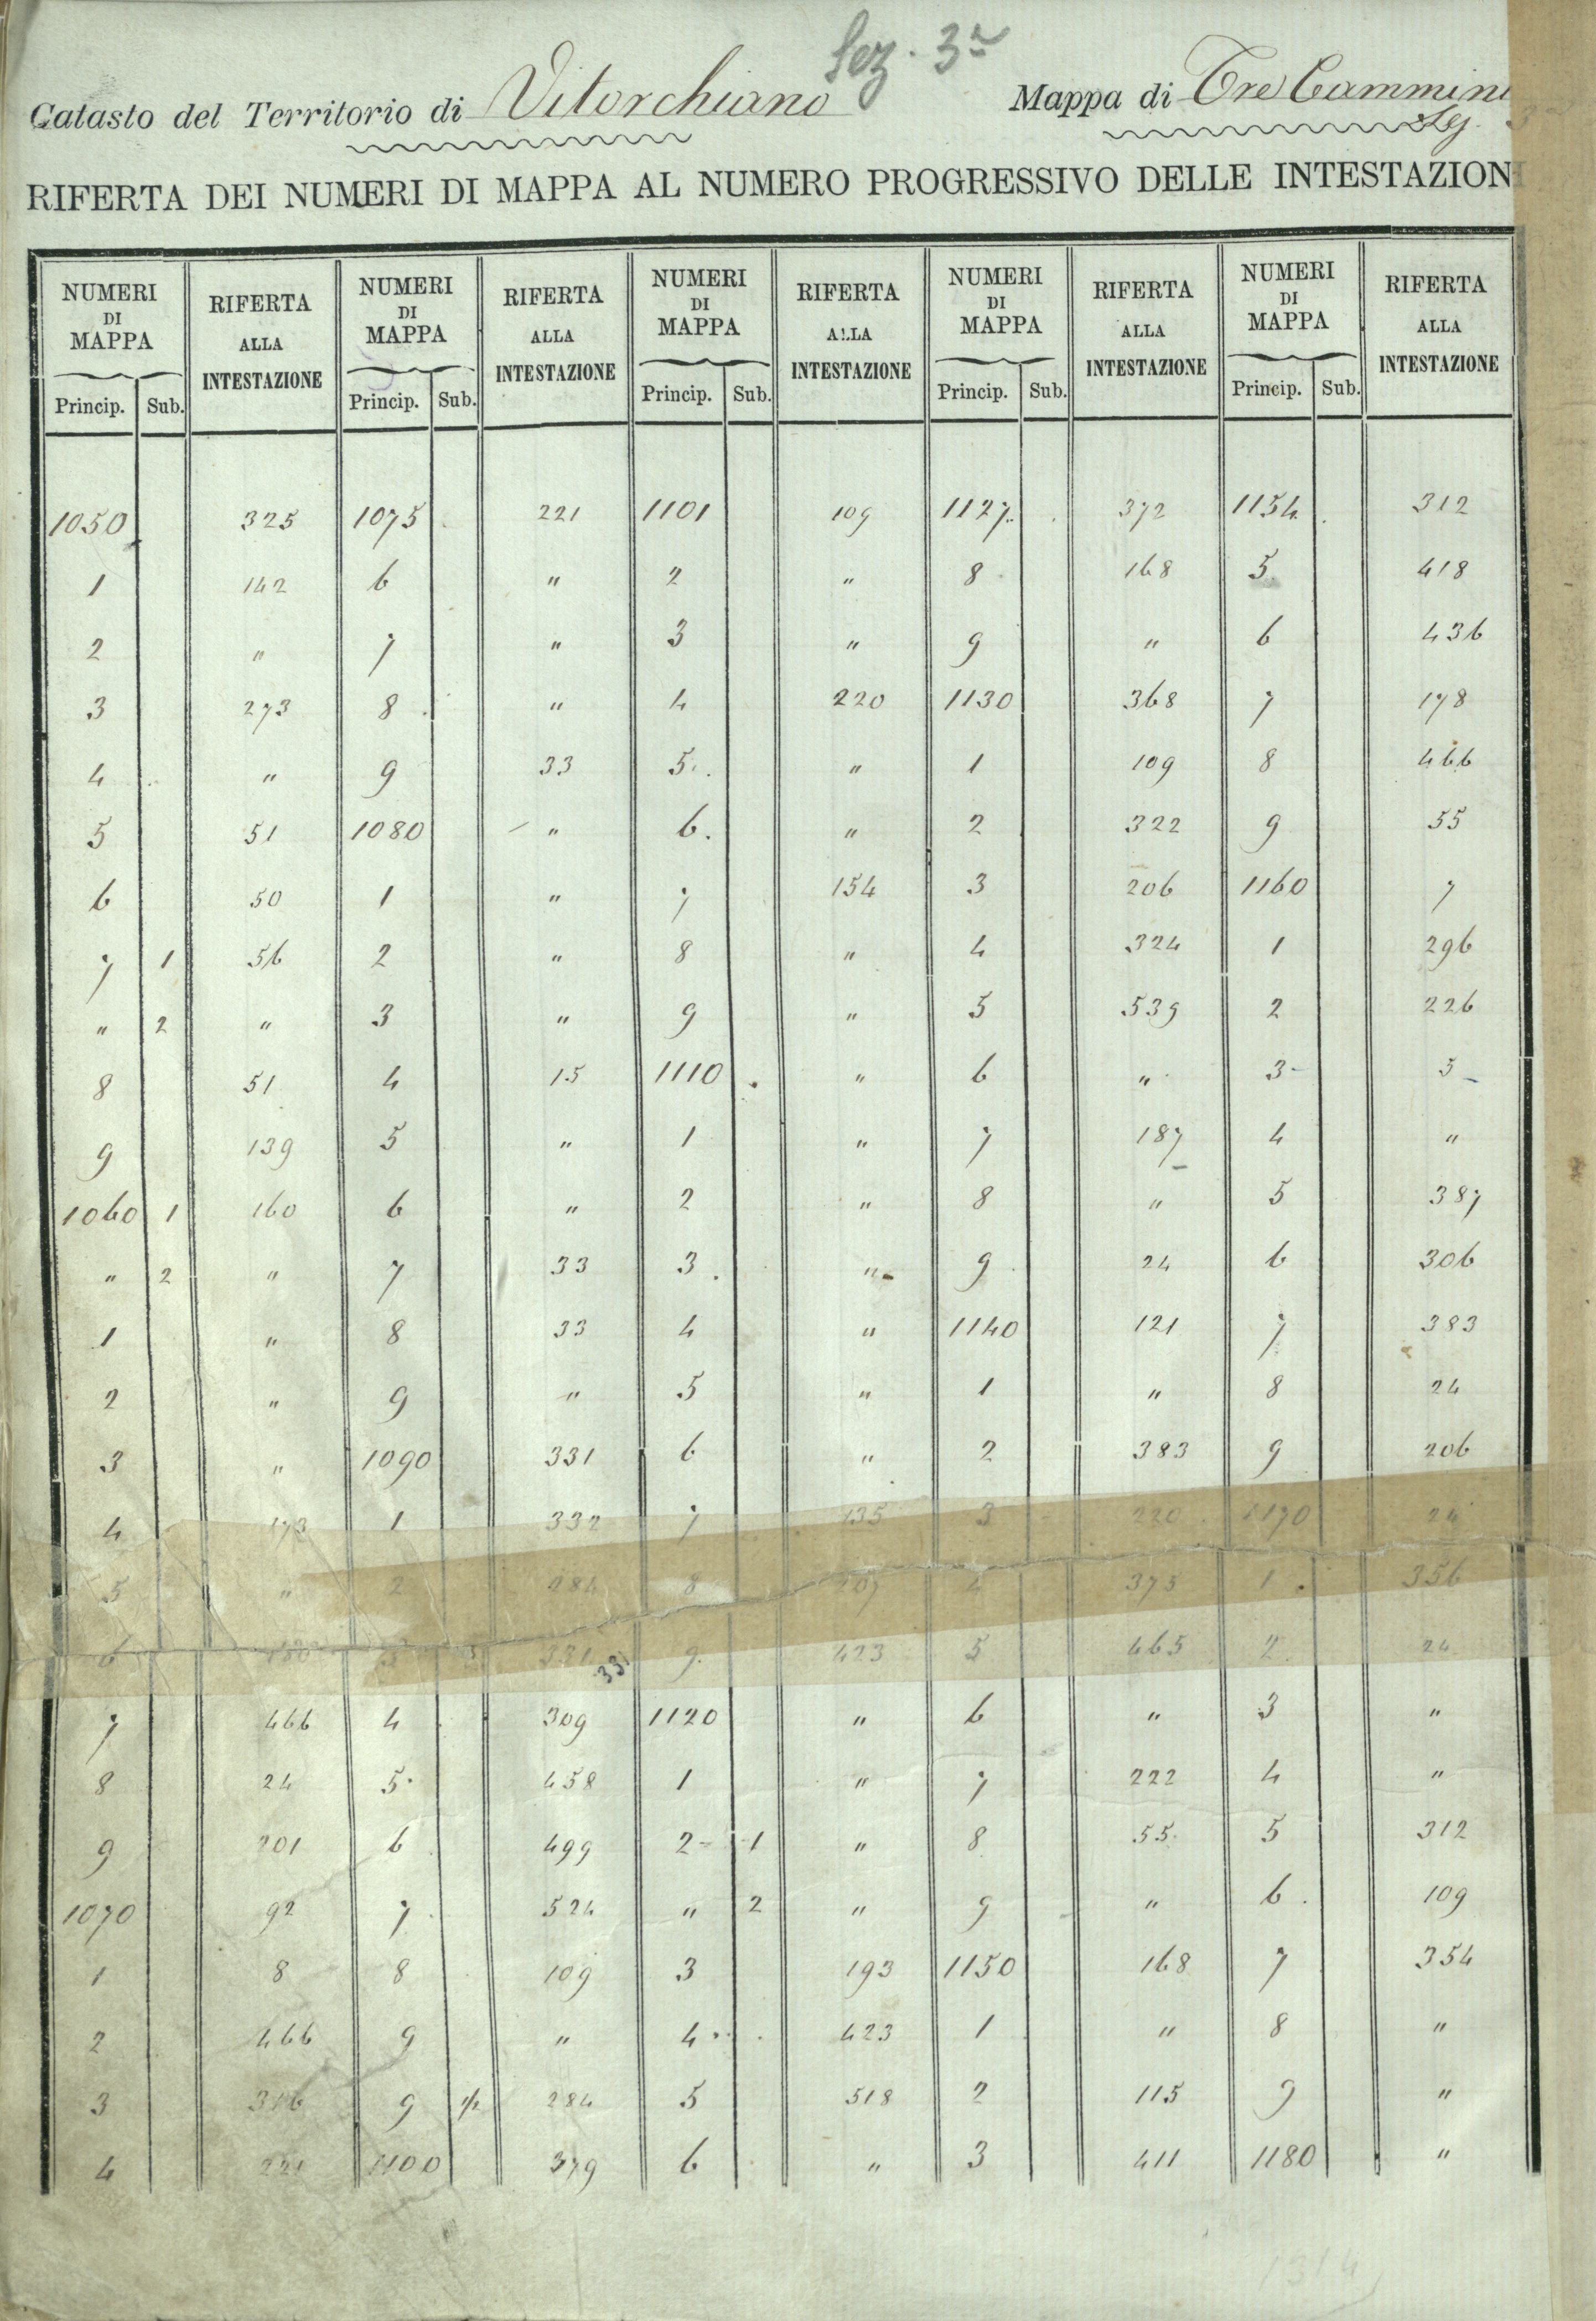 Sez. 3ª
Catasto del Territorio di Vitorchiano Mappa di Tre Cammini
Sez. 3
RIFERTA DEI NUMERI DI MAPPA AL NUMERO PROGRESSIVO DELLE INTESTAZIONI
NUMERI DI MAPPA RIFERTA ALLA INTESTAZIONE NUMERI DI MAPPA RIFERTA ALLA INTESTAZIONE NUMERI DI MAPPA RIFERTA ALLA INTESTAZIONE NUMERI DI MAPPA RIFERTA ALLA INTESTAZIONE NUMERI DI MAPPA RIFERTA ALLA INTESTAZIONE
Princip. Sub. Princip. Sub. Princip. Sub. Princip. Sub. Princip. Sub.
1050 325 1075 221 1101 109 1127 372 1154 312
1 142 6 " 2 " 8 168 5 418
2 " 7 " 3 " 9 " 6 436
3 273 8 " 4 220 1130 368 7 178
4 " 9 33 5 " 1 109 8 466
5 51 1080 " 6 " 2 322 9 55
6 50 1 " 7 154 3 206 1160 7
7 1 56 2 " 8 " 4 324 1 296
" 2 " 3 " 9 " 5 539 2 226
8 51 4 15 1110 " 6 " 3 5
9 139 5 " 1 " 7 187 4 "
1060 1 160 6 " 2 " 8 " 5 387
" 2 " 7 33 3 " 9 24 6 306
1 " 8 33 4 " 1140 121 7 383
2 " 9 " 5 " 1 " 8 24
3 " 1090 331 6 " 2 383 9 206
4 173 1 332 7 135 3 220 1170 24
5 " 2 8 4 375 1 356
6 3 331 331 9 423 5 465 2 24
7 466 4 309 1120 " 6 " 3 "
8 24 5 458 1 " 7 222 4 "
9 201 6 499 2 1 " 8 55 5 312
1070 92 7 524 " 2 " 9 " 6 109
1 8 8 109 3 193 1150 168 7 354
2 466 9 " 4 423 1 " 8 "
3 9 1/2 284 5 518 2 115 9 "
4 221 1100 379 6 " 3 411 1180 "